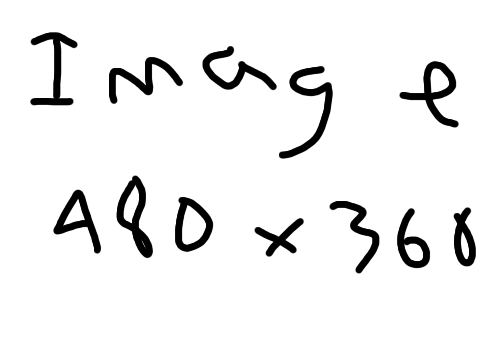 Image
480 x 360